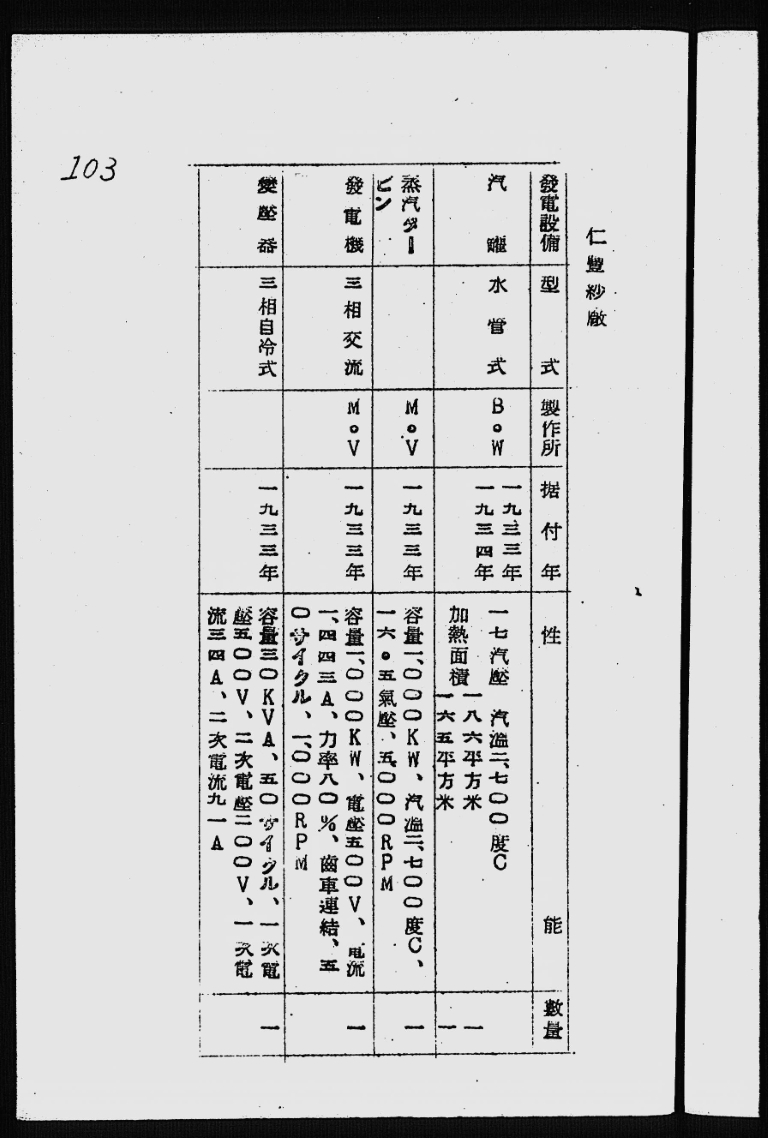 103
仁豐紗廠
發電設備
型式
製作所
据付年
性能
數量
汽罐
水管式
B。W
一九三三年
一九三四年
一七汽壓 汽溫二、七〇〇度C
加熱面積
一八六平方米
一六五平方米
一
一
蒸汽ター
ビン
M。V
一九三三年
容量一、〇〇〇KW、汽溫二、七〇〇度C、
一六。五氣壓、五、〇〇〇RPM
一
發電機
三相交流
M。V
一九三三年
容量一、〇〇〇KW、電壓五〇〇V、電流
一、四四三A、力率八〇%、齒車連結、五
〇サイクル、一、〇〇〇RPM
一
變壓器
三相自冷式
一九三三年
容量三〇KVA、五〇サイクル、一次電
壓五〇〇V、二次電壓二〇〇V、一次電
流三四A、二次電流九一A
一